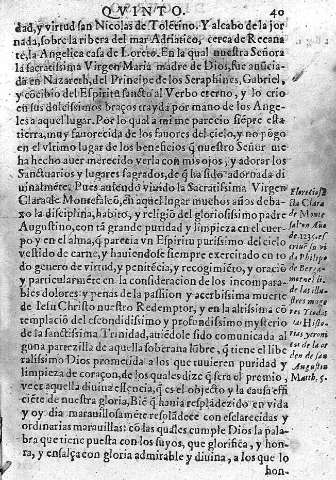 QVINTO. 40
dad, y virtud san Nicolas de Toletino. Y al cabo de la jor
nada, sobre la ribera del mar Adriatico, cerca de Recana
te, la Angelica casa de Loreto. En la qual nuestra Señora
la sacratissima Virgen Maria madre de Dios, fue anũcia
da en Nazareth, del Principe de los Seraphines, Gabriel,
y cõcibio del Espiritu sancto al Verbo eterno, y lo crio
en sus dulcissimos braços trayda por mano de los Ange-
les a aquel lugar. Por lo qual a mi me parecio siẽpre esta
tierra, muy fauorecida de los fauores del cielo, y no põgo
en el vltimo lugar de los beneficios q̃ nuestro Señor me
ha hecho auer merecido verla con mis ojos, y adorar los
Sanctuarios y lugares sagrados, de q̃ ha sido adornada di
uinalmẽte. Pues auiendo viuido la Sacratissima Virgen
Clara de Montefalco, en aquel lugar muchos años deba-
xo la disciplina, habito, y religiõ del gloriosissimo padre
Augustino, con tã grande puridad y limpieza en el cuer-
po y en el alma, q̃ parecia vn Espiritu purissimo del cielo
vestido de carne, y hauiendose siempre exercitado en to
do genero de virtud, y penitẽcia, y recogimiẽto, y oraciõ
y particularmẽte en la consideracion de los incompara-
bles dolores y penas de la passion y acerbissima muerte
de Iesu Christo nuestro Redemptor, y en la altissima cõ
templacion del escondidissimo y profundissimo mysterio
de la sanctissima Trinidad, auiẽdole sido comunicada al
guna parezilla de aquella soberana lũbre, q̃ tiene el libe
ralissimo Dios prometida a los que tuuieren puridad y
limpieza de coraçon, de los quales dize q̃ sera el premio,
veer aquella diuina essencia, q̃ es el objecto y la causa effi
ciẽte de nuestra gloria, Biẽ q̃ hauia resplãdecido en vida
y oy dia marauillosamẽte resplãdece con esclarecidas y
ordinarias marauillas: cõ las quales cumple Dios la pala-
bra que tiene puesta con los suyos, que glorifica, y hon-
ra, y ensalça con gloria admirable y diuina, a los que lo
hon-
sta Clara
de Monte
fal
de
Philipo
de Berga-
de la or
den de san
Augustin
Matth. 5.